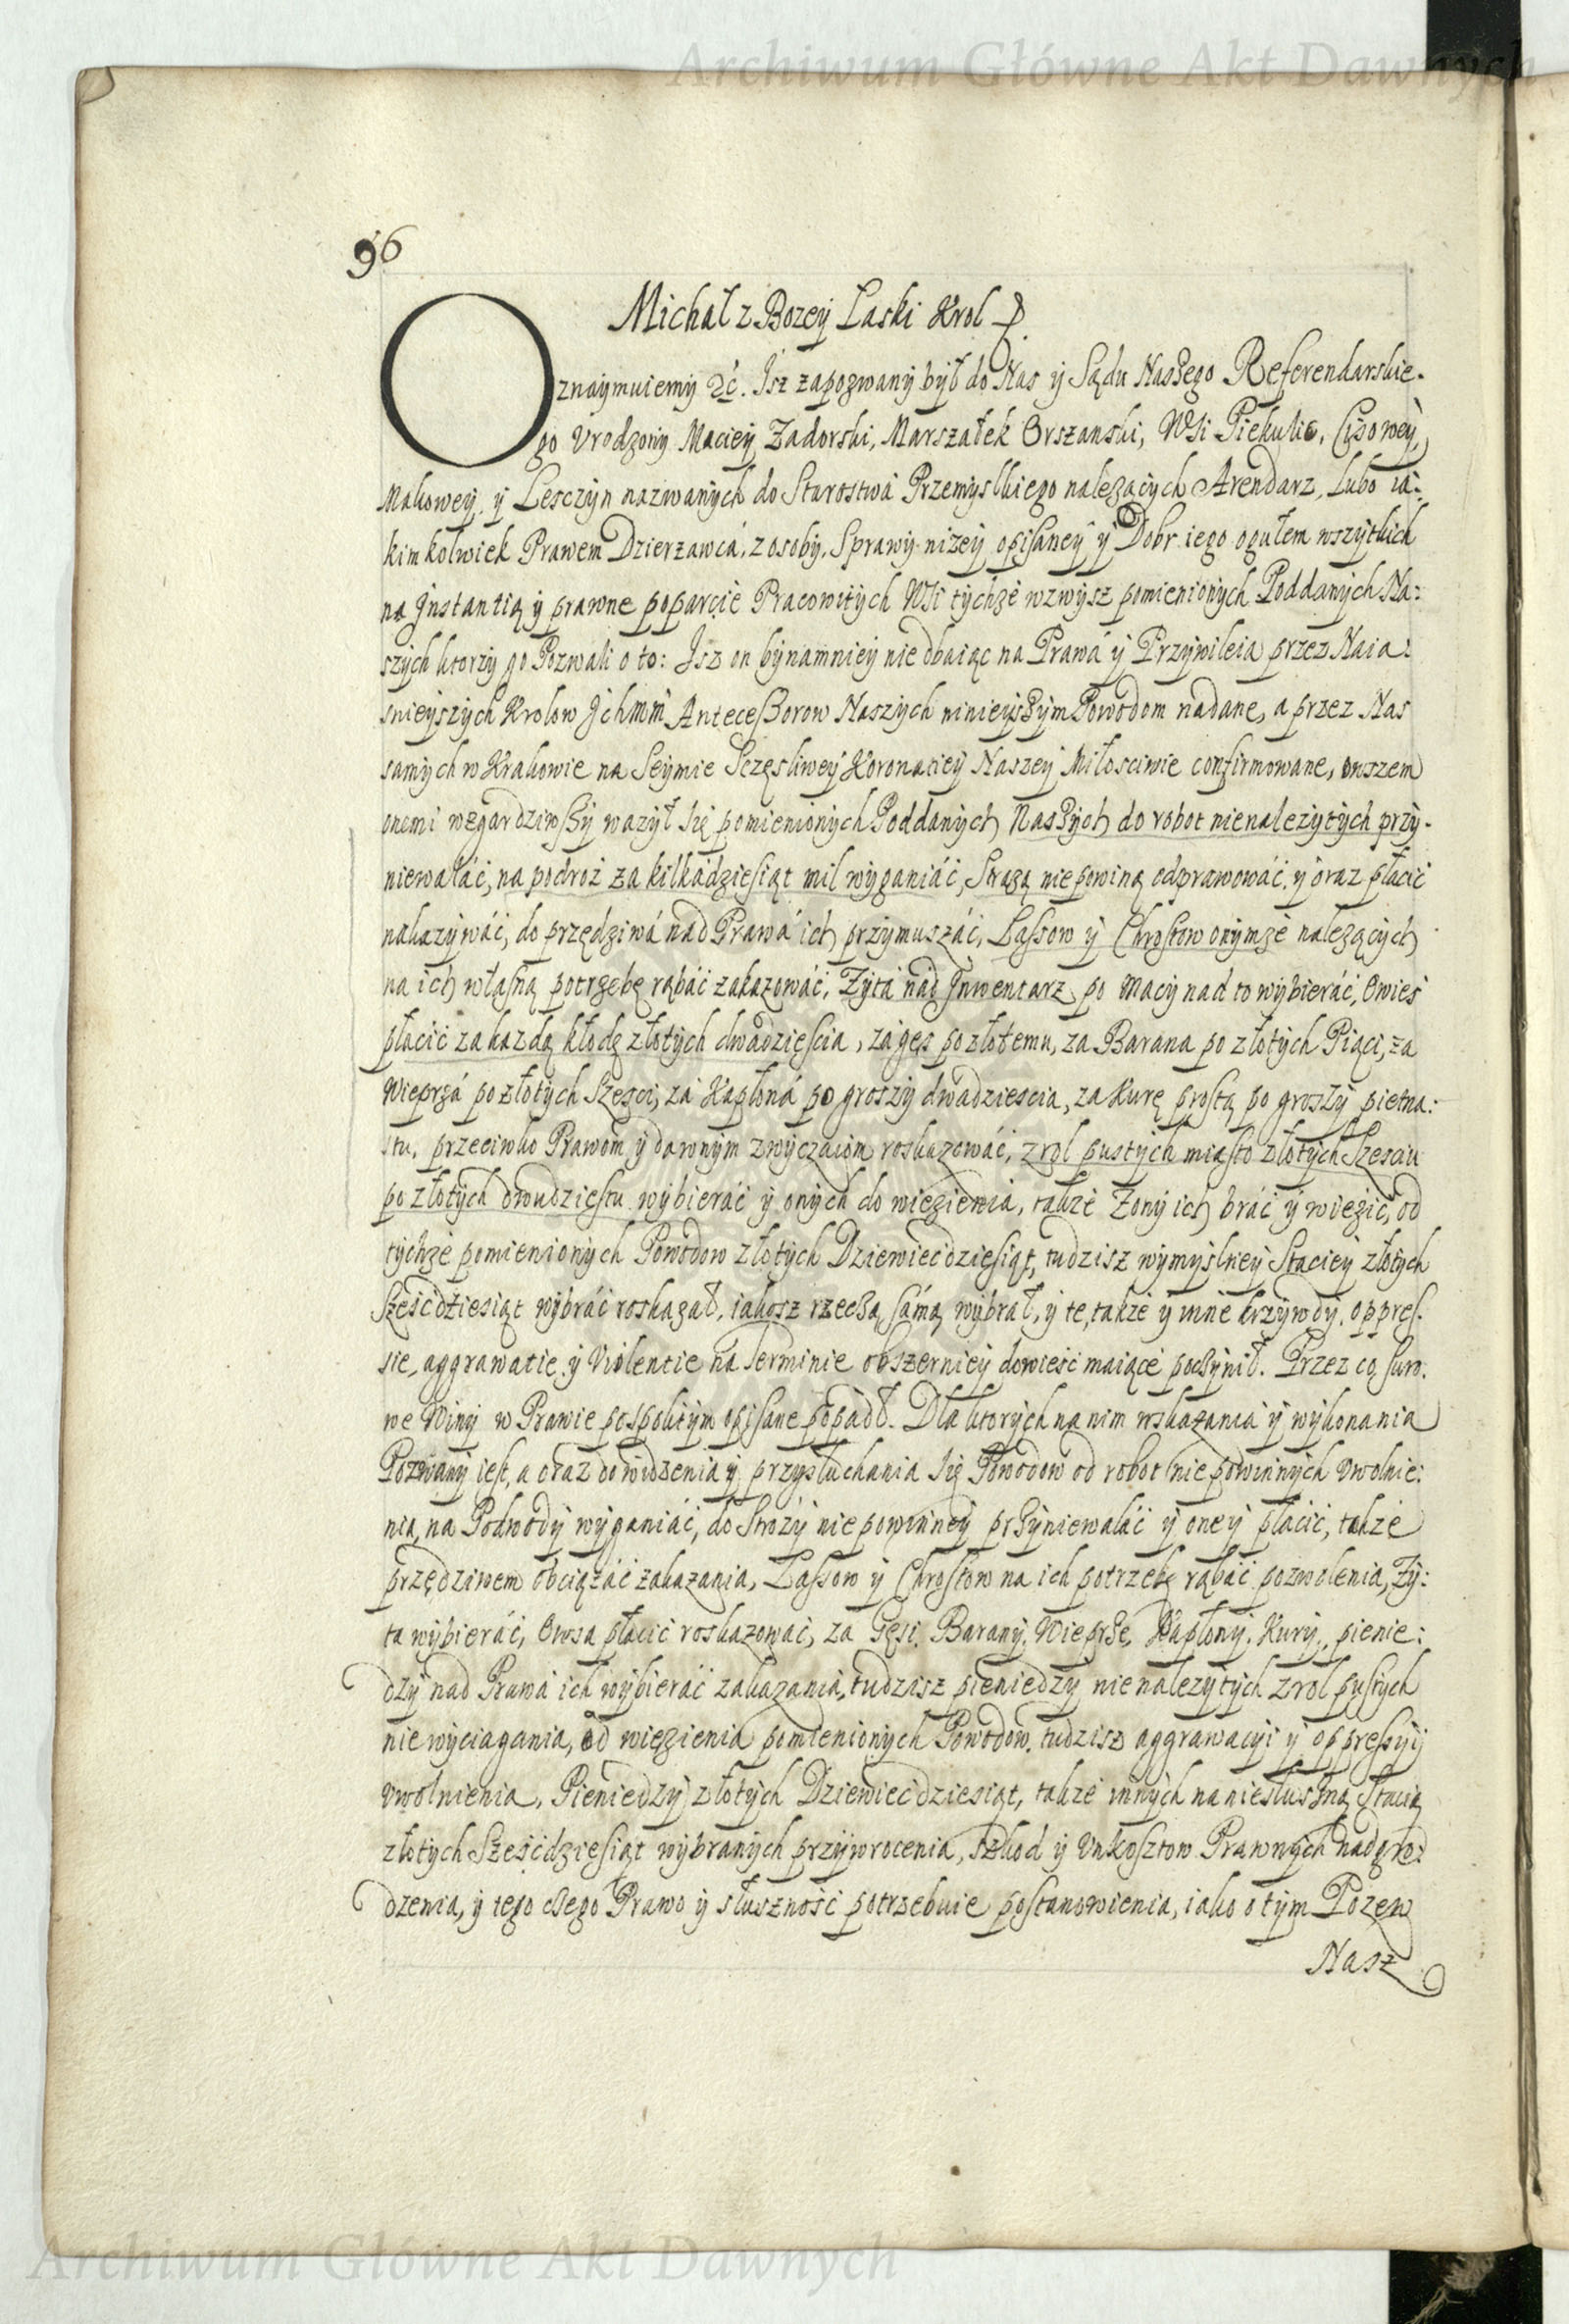 Archiwum Główne Akt Dawnych
96
Michał z Bozey Laski Krol P.
Oznaymuiemy &c. Jsz zapozwany był do Nas y Sądu Naszego Referendarskie-
go Vrodzony Maciey Zadorski, Marszałek Orszanski, Wsi Piekulic, Cisowey,
Makowey, y Lesczyn nazwanych do Starostwá Przemyslkiego nalezących Arendarz, lubo ia:
kimkolwiek Prawem Dzierzawcá, z osoby, Sprawy nizey opisaney y Dobr iego ogułem wszytkich
na Jnstantią y prawne poparcie Pracowitych Wsi tychże wzwysz pomienionych Poddanych Na:
szych ktorzy go Pozwali o to: Jsz on bynamniey nie dbaiąc na Prawá y Przywileia przez Naia:
snieyszych Krolow Jchmm Antecessorow Naszych ninieyszym Powodom nadane, a przez Nas
samych w Krakowie na Seymie Sczęsliwey Koronaciey Naszey Miłosciwie confirmowane, owszem
onemi wzgardziwszy wazył się pomienionych Poddanych Naszych do robot nienalezytych przy-
niewaláć, na podroż za kilkádziesiąt mil wyganiáć, Strazą niepowiną odprawowáć, y oraz płacić
nakazywáć, do przędziwá nad Prawá ich przymuszáć, Lassow y Chrostow onymże nalezących
na ich własną potrzebę rąbáć zakazowáć, Zytá nad Jnwentarz po Macy nad to wybieráć, Owies
płacić za kazdą kłodę złotych dwadzieścia, zá gęs po złotemu, za Barana po złotych Piąci, za
Wieprzá po złotych Szesci, zá Kapłoná po groszy dwadziescia, za Kurę prostą po groszy pietna:
stu, przeciwko Prawom y dawnym zwyczaiom roskazowáć, z rol pustych miasto złotych Szesciu
po złotych dwudziestu wybieráć y onych do wiezienia, takze Zony ich bráć y wiezić, od
tychże pomienionych Powodow złotych Dziewiecdziesiąt, tudzisz wymyslney Staciey złotych
Sześćdziesiąt wybráć roskazał, iakosz rzeczą sámą wybrał, y te, takze y inne krzywdy, oppres-
sie, aggrawatie, y Violentie na Terminie obszerniey dowieść maiące poczynił. Przez co suro-
we Winy w Prawie pospolitym opisane popadł. Dla ktorych na nim wskazania y wykonania
Pozwany iest, a oraz do widzenia y przysłuchania się Powodow od robot niepowinnych vwolnie:
nia, na Podwody wyganiáć, do Strozy niepowinney przyniewaláć y oney płacić, takze
przędziwem obciązáć zakazania, Lassow y Chrostow na ich potrzebę rąbáć pozwolenia, Zy:
ta wybieráć, Owsa płacić roskazowáć, za Gęsi, Barany, Wieprze, Kapłony, Kury, pienie:
dzy nad Prawá ich wybieráć zakazania, tudzisz pieniedzy nienalezytych z rol pustych
niewyciagania, od wiezienia pomienionych Powodow, tudzisz aggrawacyi y oppressyi
vwolnienia, Pieniedzy złotych Dziewiecdziesiąt, takze innych na niesłuszną Stacią
złotych Sześćdziesiąt wybranych przywrocenia, szkod y vnkosztow Prawnych nadgro:
dzenia, y tego czego Prawo y słuszność potrzebuie postanowienia, iako o tym Pozew
Nasz
Archiwum Główne Akt Dawnych